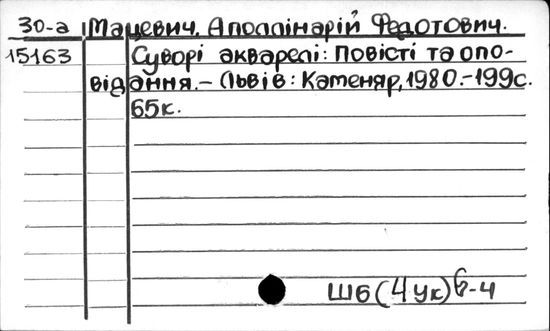 30-а Мацевич, Аполлінарій Федотович.
15163 Суворі акварелі: Повісті та опо-
відання. – Львів: Каменяр, 1980.-199с.
65к.
Ш6(4Ук)